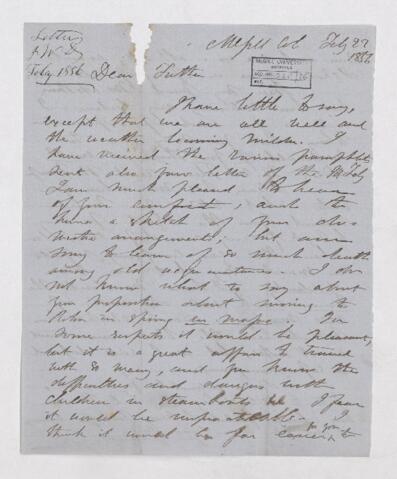 Letter
J. W. D.
Feby 1856
McGill Col Feby 22
1856
McGILL UNIVERSITY
ARCHIVES
ACC. NO.
REF.
Dear Father
I have little to say,
except that we are all well and
the weather becoming milder. I
have received the various pamphlets
sent also your letter of the Feby
I am much pleased to hear
of your comfort, and to
have a sketch of your do-
mestic arrangements; but am
sorry to learn of so much death
among old acquaintances. I do
not know what to say about
your proposition about moving to
in Spring en masse. In
some respects it would be pleasant,
but it is a great affair to travel
with so many, and you know the
difficulties and dangers with
children in steam boats &c I fear
it would be impracticable. I
think it would be far easier for you to